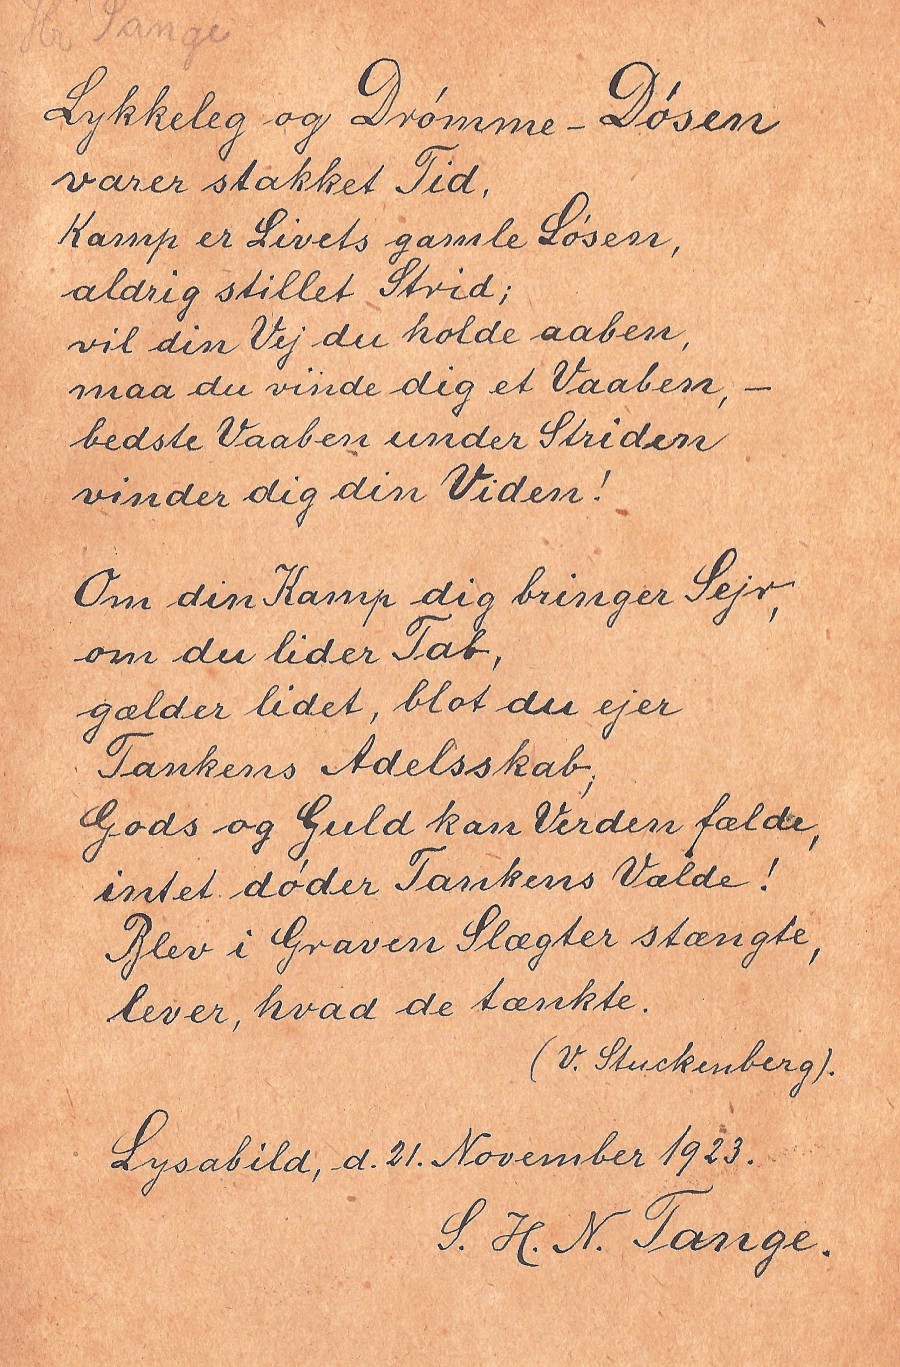 Hr Tange
Lykkeleg og Drómme-Dósen
varer stakket Tid,
Kamp er Livets gamle Lósen,
aldrig stillet Strid;
vil din Vej du holde aaben,
maa du vinde dig et Vaaben, —
bedste Vaaben under Striden
vinder dig din Viden!
Om din Kamp dig bringer Sejr,
om du lider Tab,
gælder lidet, blot du ejer
Tankens Adelsskab;
Gods og Guld kan Verden fælde,
intet dóder Tankens Vælde!
Blev i Graven Slægter stængte,
lever, hvad de tænkte.
(V. Stuckenberg).
Lysabild, d. 21. November 1923.
S. H. N. Tange.